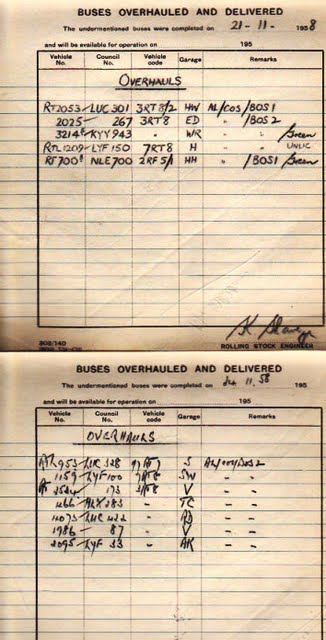 BUSES OVERHAULED AND DELIVERED
The undermentioned buses were completed on 21-11- 1958
and will be available for operation on 195
Vehicle No. Council No. Vehicle code Garage Remarks
OVERHAULS
RT2053 LUC301 3RT8/2 HW AL/COS/BOS1
2025 267 3RT8 ED " /BOS2
3214 KYY943 " WR " " Green
RTL1209 LYF150 7RT8 H " " UNLIC
RT700 NLE700 2RF5/1 HH " /BOS1 Green
ROLLING STOCK ENGINEER
BUSES OVERHAULED AND DELIVERED
The undermentioned buses were completed on 11. 58 195
and will be available for operation on 195
Vehicle No. Council No. Vehicle code Garage Remarks
OVERHAULS
953 328 S
1159 LYF100 SW - -
173 V - -
283 TC - -
LUC 422 - -
1986 - 87 V - -
2095 - LYF 33 AK - -